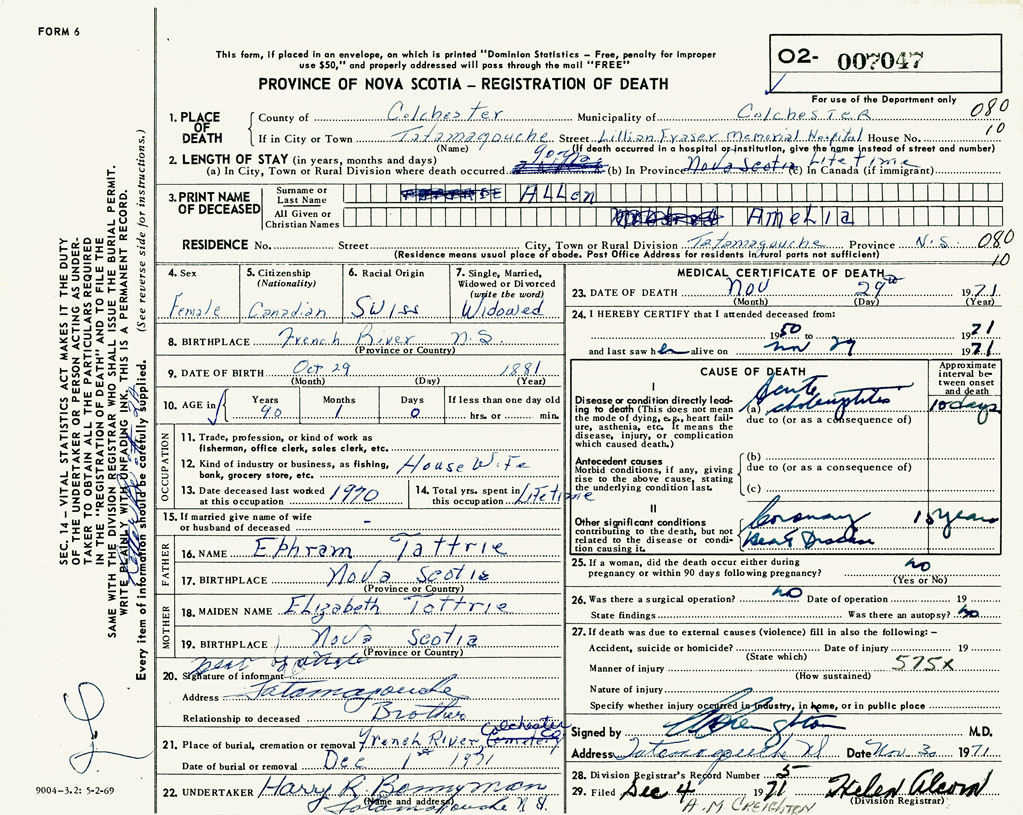 FORM 6
This form, if placed in an envelope, on which is printed "Dominion Statistics – Free, penalty for improper
use $50," and properly addressed will pass through the mail "FREE"
PROVINCE OF NOVA SCOTIA – REGISTRATION OF DEATH
02- 007047
For use of the Department only
1. PLACE OF DEATH
County of Colchester Municipality of COLCHESTER 080
If in City or Town Tatamagouche Street Lillian Fraser Memorial Hospital House No. 10
(Name) (If death occurred in a hospital or institution, give the name instead of street and number)
2. LENGTH OF STAY (in years, months and days)
(a) In City, Town or Rural Division where death occurred (b) In Province Nova Scotia (c) In Canada (if immigrant) Life Time
3. PRINT NAME OF DECEASED
Surname or Last Name ALLEN
All Given or Christian Names AMELIA
RESIDENCE No. Street City, Town or Rural Division Tatamagouche Province N.S. 080
(Residence means usual place of abode. Post Office Address for residents in rural parts not sufficient) 10
4. Sex
Female
5. Citizenship (Nationality)
Canadian
6. Racial Origin
Swiss
7. Single, Married, Widowed or Divorced (write the word)
Widowed
8. BIRTHPLACE French River N.S.
(Province or Country)
9. DATE OF BIRTH Oct 29 1881
(Month) (Day) (Year)
10. AGE in Years Months Days If less than one day old
90 1 0 hrs. or min.
OCCUPATION
11. Trade, profession, or kind of work as
fisherman, office clerk, sales clerk, etc.
12. Kind of industry or business, as fishing,
bank, grocery store, etc. House Wife
13. Date deceased last worked at this occupation 1970
14. Total yrs. spent in this occupation Lifetime
15. If married give name of wife
or husband of deceased -
FATHER
16. NAME Ephram Tattrie
17. BIRTHPLACE Nova Scotia
(Province or Country)
MOTHER
18. MAIDEN NAME Elizabeth Tattrie
19. BIRTHPLACE Nova Scotia
(Province or Country)
20. Signature of informant
Address Tatamagouche
Relationship to deceased Brother
21. Place of burial, cremation or removal French River Cemetery Colchester Co
Date of burial or removal Dec 1st 1971
22. UNDERTAKER Harry R. Bonnyman
(Name and address) Tatamagouche N.S.
MEDICAL CERTIFICATE OF DEATH
23. DATE OF DEATH Nov 29th 1971
(Month) (Day) (Year)
24. I HEREBY CERTIFY that I attended deceased from:
1950 to 1971
and last saw her alive on Nov 29 1971
CAUSE OF DEATH
Approximate interval between onset and death
I
Disease or condition directly leading to death (This does not mean the mode of dying, e.g., heart failure, asthenia, etc. It means the disease, injury, or complication which caused death.)
(a) Acute cholecystitis 10 days
due to (or as a consequence of)
Antecedent causes
Morbid conditions, if any, giving rise to the above cause, stating the underlying condition last.
(b)
due to (or as a consequence of)
(c)
II
Other significant conditions contributing to the death, but not related to the disease or condition causing it.
Coronary Heart Disease 15 years
25. If a woman, did the death occur either during
pregnancy or within 90 days following pregnancy? No
(Yes or No)
26. Was there a surgical operation? No Date of operation 19
State findings Was there an autopsy? No
27. If death was due to external causes (violence) fill in also the following: –
Accident, suicide or homicide? Date of injury 19
(State which)
Manner of injury 575X
(How sustained)
Nature of injury
Specify whether injury occurred in industry, in home, or in public place
Signed by M.D.
Address Tatamagouche NS Date Nov. 30 1971
28. Division Registrar's Record Number 5
29. Filed Dec 4 1971 Helen Alcorn
(Division Registrar)
A. M CREIGHTON
SEC. 14 – VITAL STATISTICS ACT MAKES IT THE DUTY
OF THE UNDERTAKER OR PERSON ACTING AS UNDER-
TAKER TO OBTAIN ALL THE PARTICULARS REQUIRED
IN THE "REGISTRATION OF DEATH" AND TO FILE THE
SAME WITH THE DIVISION REGISTRAR WHO SHALL ISSUE THE BURIAL PERMIT.
WRITE PLAINLY WITH UNFADING INK, THIS IS A PERMANENT RECORD.
Every item of information should be carefully supplied. (See reverse side for instructions.)
9004-3.2: 5-2-69